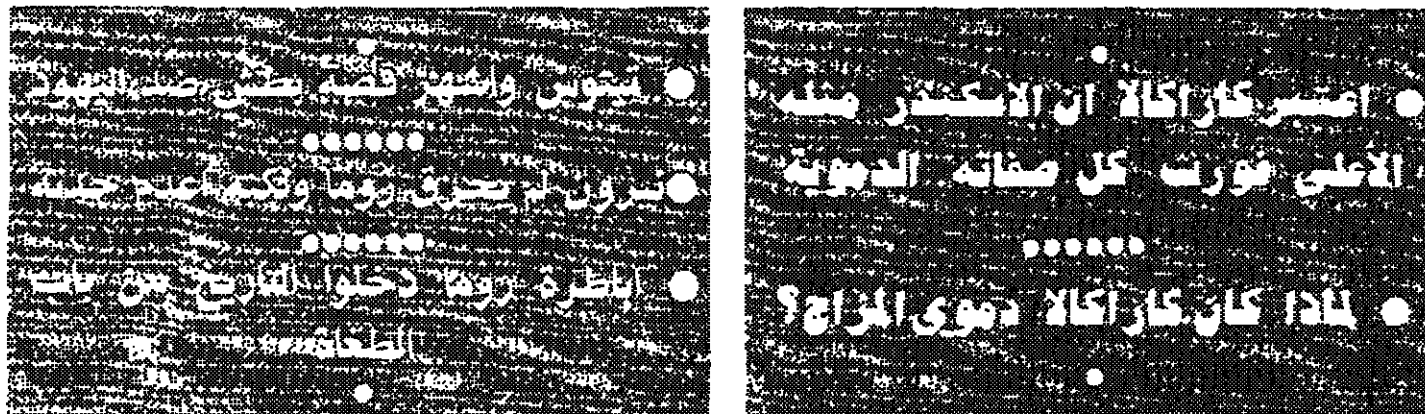 • اعتبر كاراكالا ان الاسكندر مثله
الأعلى فورث كل صفاته الدموية
• لماذا كان كاراكالا دموى المزاج؟
• تيتوس وأشهر قصة بطش ضد اليهود
• نيرون لم يحرق روما ولكنه أعدم
• اباطرة روما دخلوا التاريخ من باب
الطغاة